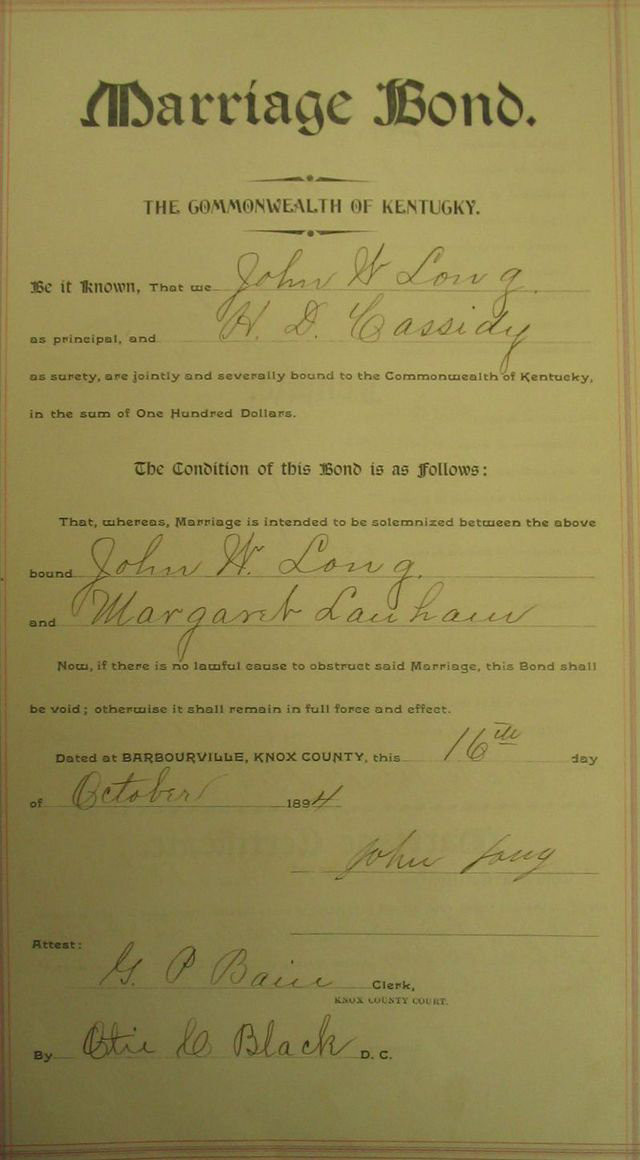 Marriage Bond.
THE COMMONWEALTH OF KENTUCKY.
Be it Known, That we John W Long.
H. D. Cassidy
as principal, and
as surety, are jointly and severally bound to the Commonwealth of Kentucky,
in the sum of One Hundred Dollars.
The Condition of this Bond is as Follows:
That, whereas, Marriage is intended to be solemnized between the above
bound John W. Long.
and Margaret Lanham
Now, if there is no lawful cause to obstruct said Marriage, this Bond shall
be void; otherwise it shall remain in full force and effect.
Dated at BARBOURVILLE, KNOX COUNTY, this 16th day
of October 1894
John Long
Attest:
G. P Bain Clerk,
KNOX COUNTY COURT.
By Black D. C.